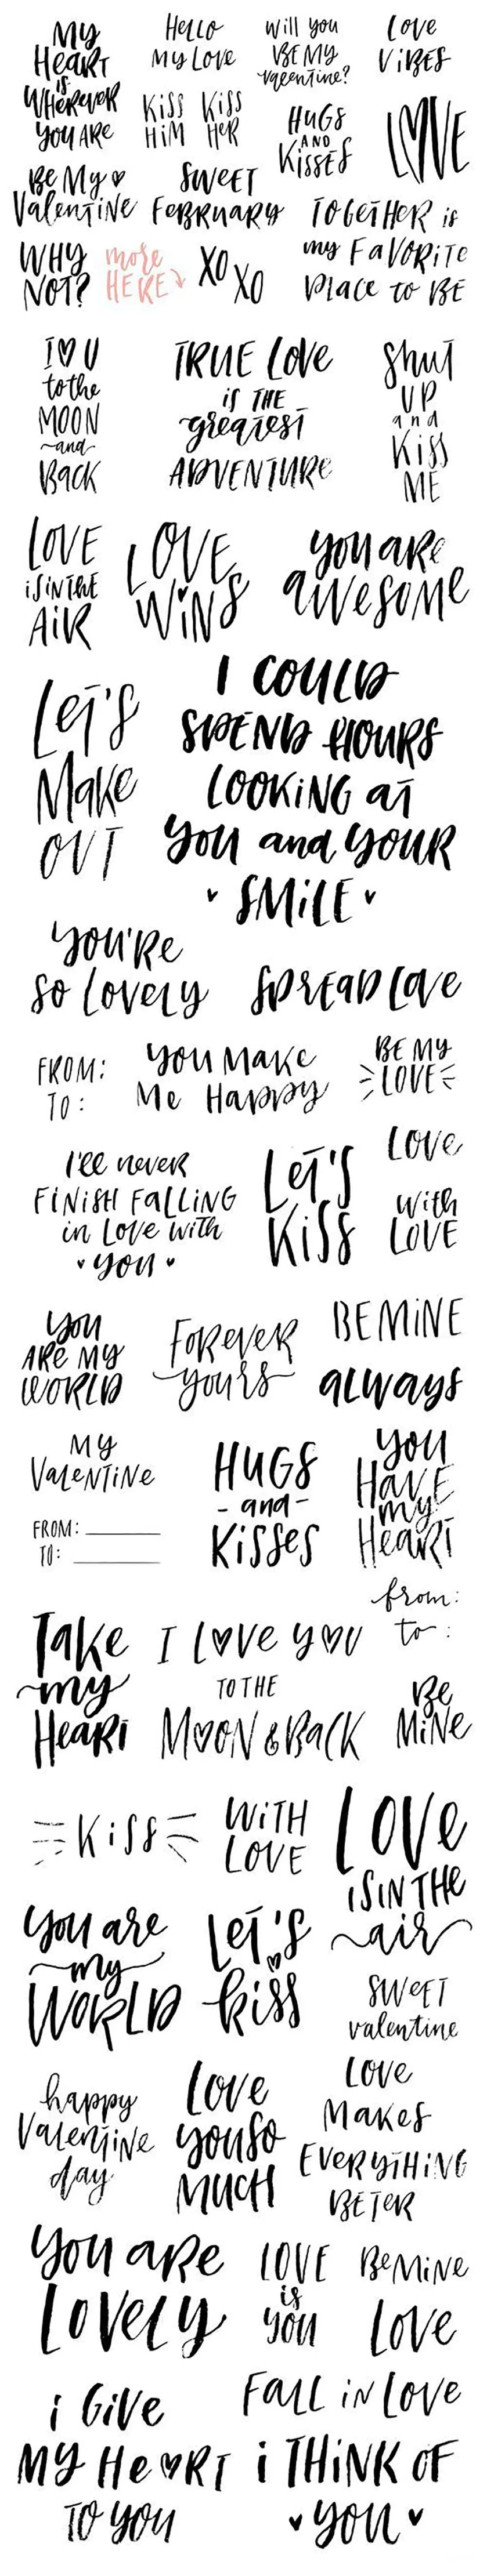 MY
HEART
is
WHEREVER
YOU ARE
HELLO
MY LOVE
Will you
BE MY
valentine?
LOVE
ViBES
KiSS
HiM
KiSS
HER
HUGS
AND
KiSSES
LOVE
Be My
ValenTiNe
SWEET
FEBRUARY
TOGETHER is
my FAVORiTe
Place to BE
WHY
NOT?
more
HERE
XO
XO
I ♥ U
to the
MOON
and
BACK
TRUE Love
is THE
greatest
ADVENTURe
Shut
UP
and
KiSS
ME
LOVE
iS iN THE
AiR
LOVE
WiNS
you are
aWeSOMe
Let's
Make
OUT
I COULD
SPEND HOURS
LOOKiNG at
You and YOUR
SMiLE
You're
So Lovely
SPREAD Love
FROM:
TO:
You Make
Me Happy
BE MY
LOVE
I'll never
FiNiSH FaLLiNG
in Love with
you
Let's
KiSS
Love
With
LOVE
You
ARe MY
WORLD
FOReveR
yours
BE MiNE
always
MY
ValeNTiNe
FROM:
TO:
HUGS
- and -
KiSSes
You
HAVE
my
HeaRT
from:
to:
Take
my
HeaRT
I L♥ve y♥u
TO THE
M♥ON & BaCK
Be
MiNe
KiSS
WiTH
LOVE
LOVe
iS iN THe
air
You are
my
WORLD
Let's
kiss
SWeeT
valentine
happy
ValenTiNe
day
Love
you so
MUCH
Love
Makes
EVERYTHiNG
BETeR
You are
LOVeLY
LOVE
is
you
Be MiNe
Love
i GiVe
MY He♥RT
TO YOU
FaLL iN LOVe
i THiNK OF
you